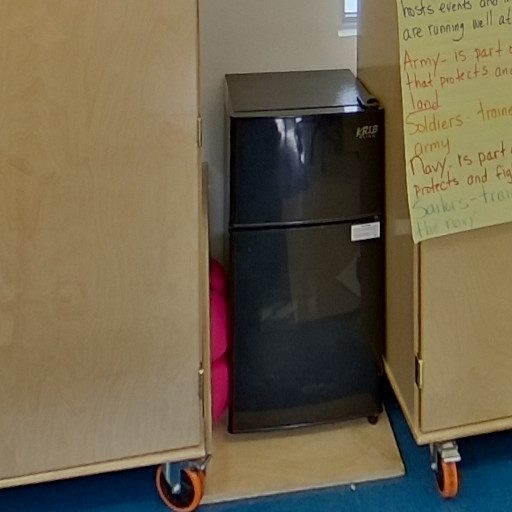 hosts events and
are running well at
Army- is part
that protects and
land
Soldiers - traine
army
Navy- is part
protects and fig
Sailors - trai
the navy